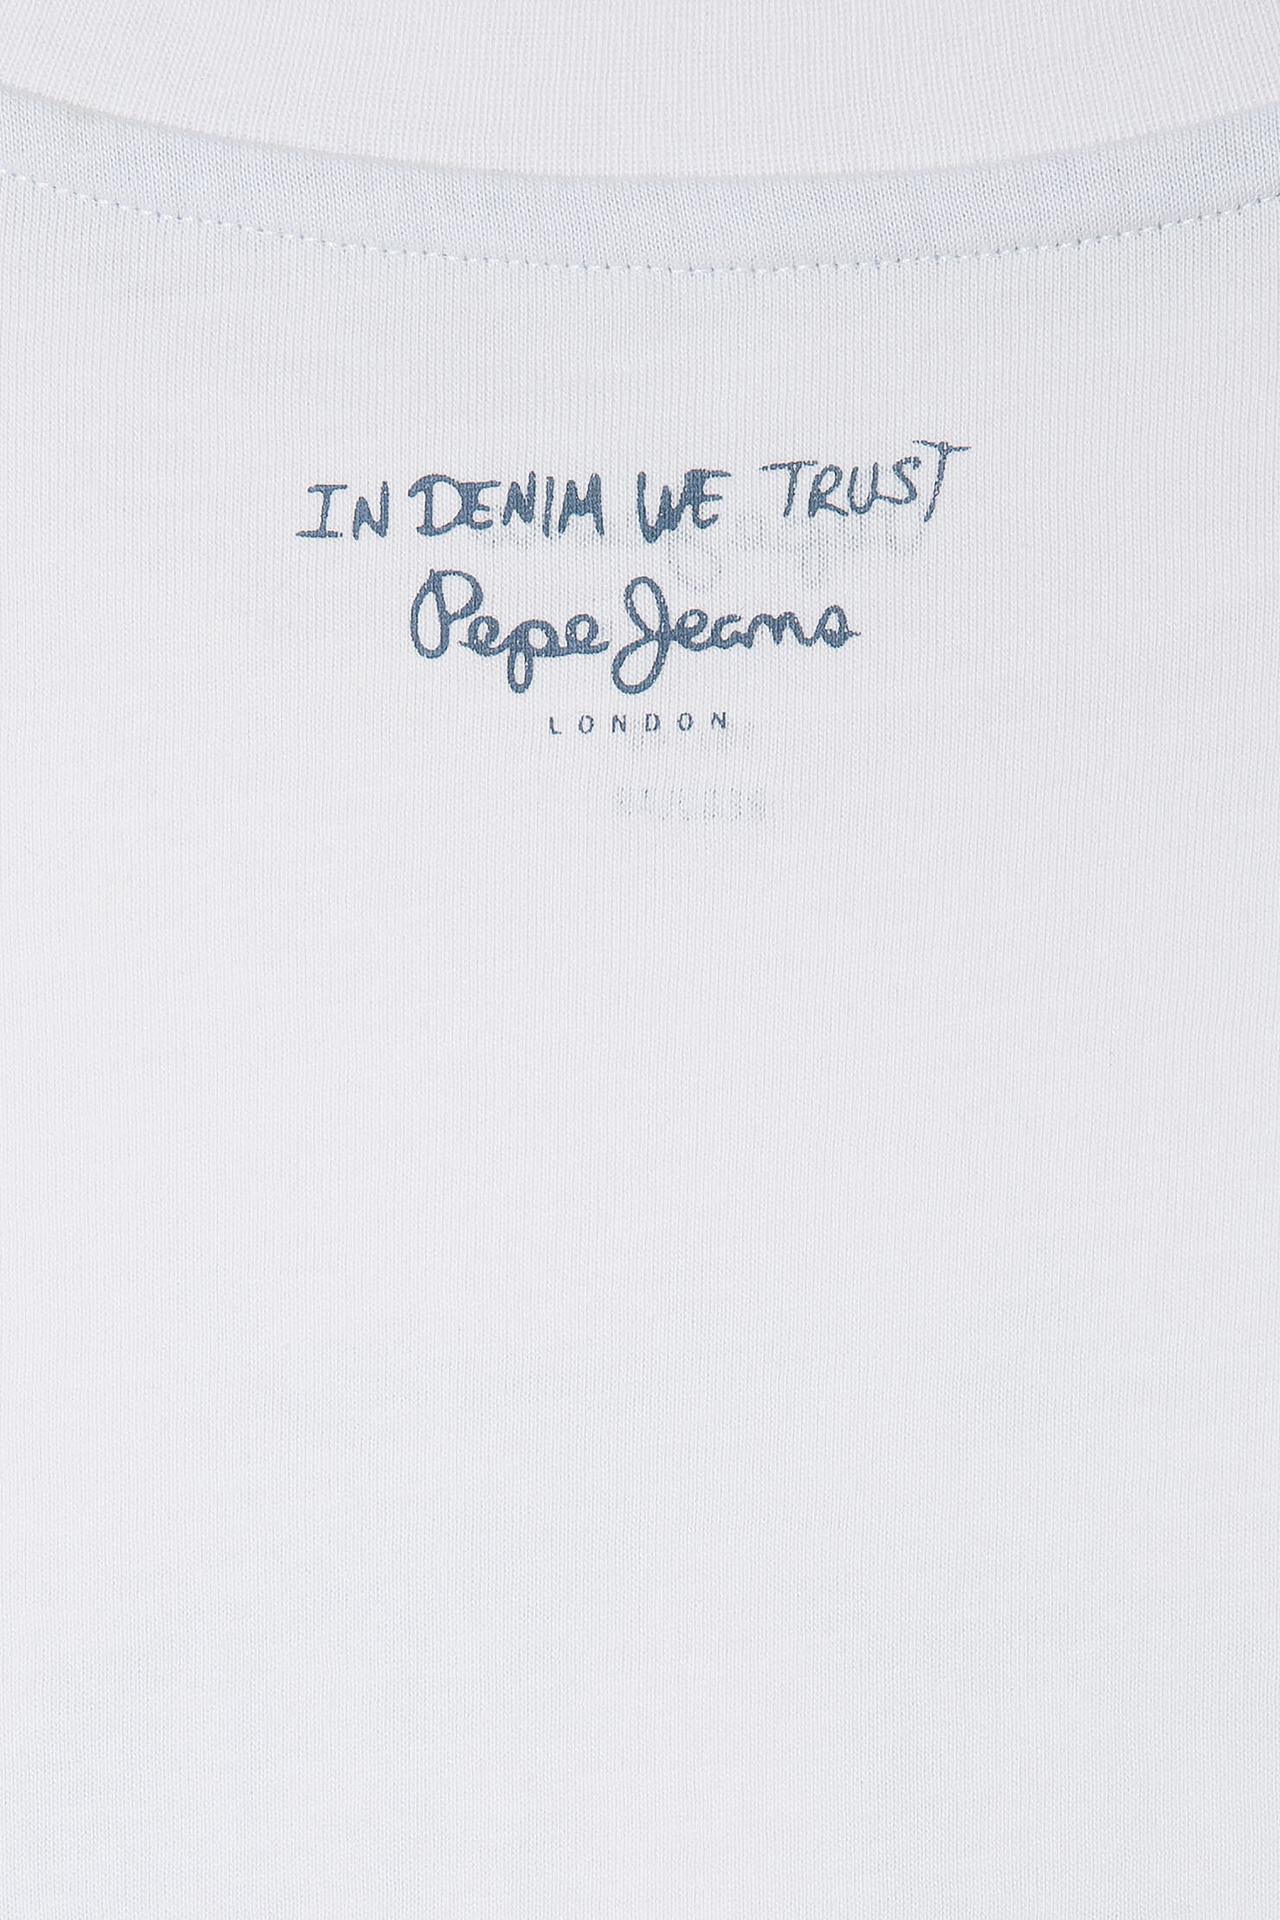 IN DENIM WE TRUST
Pepe Jeans
LONDON